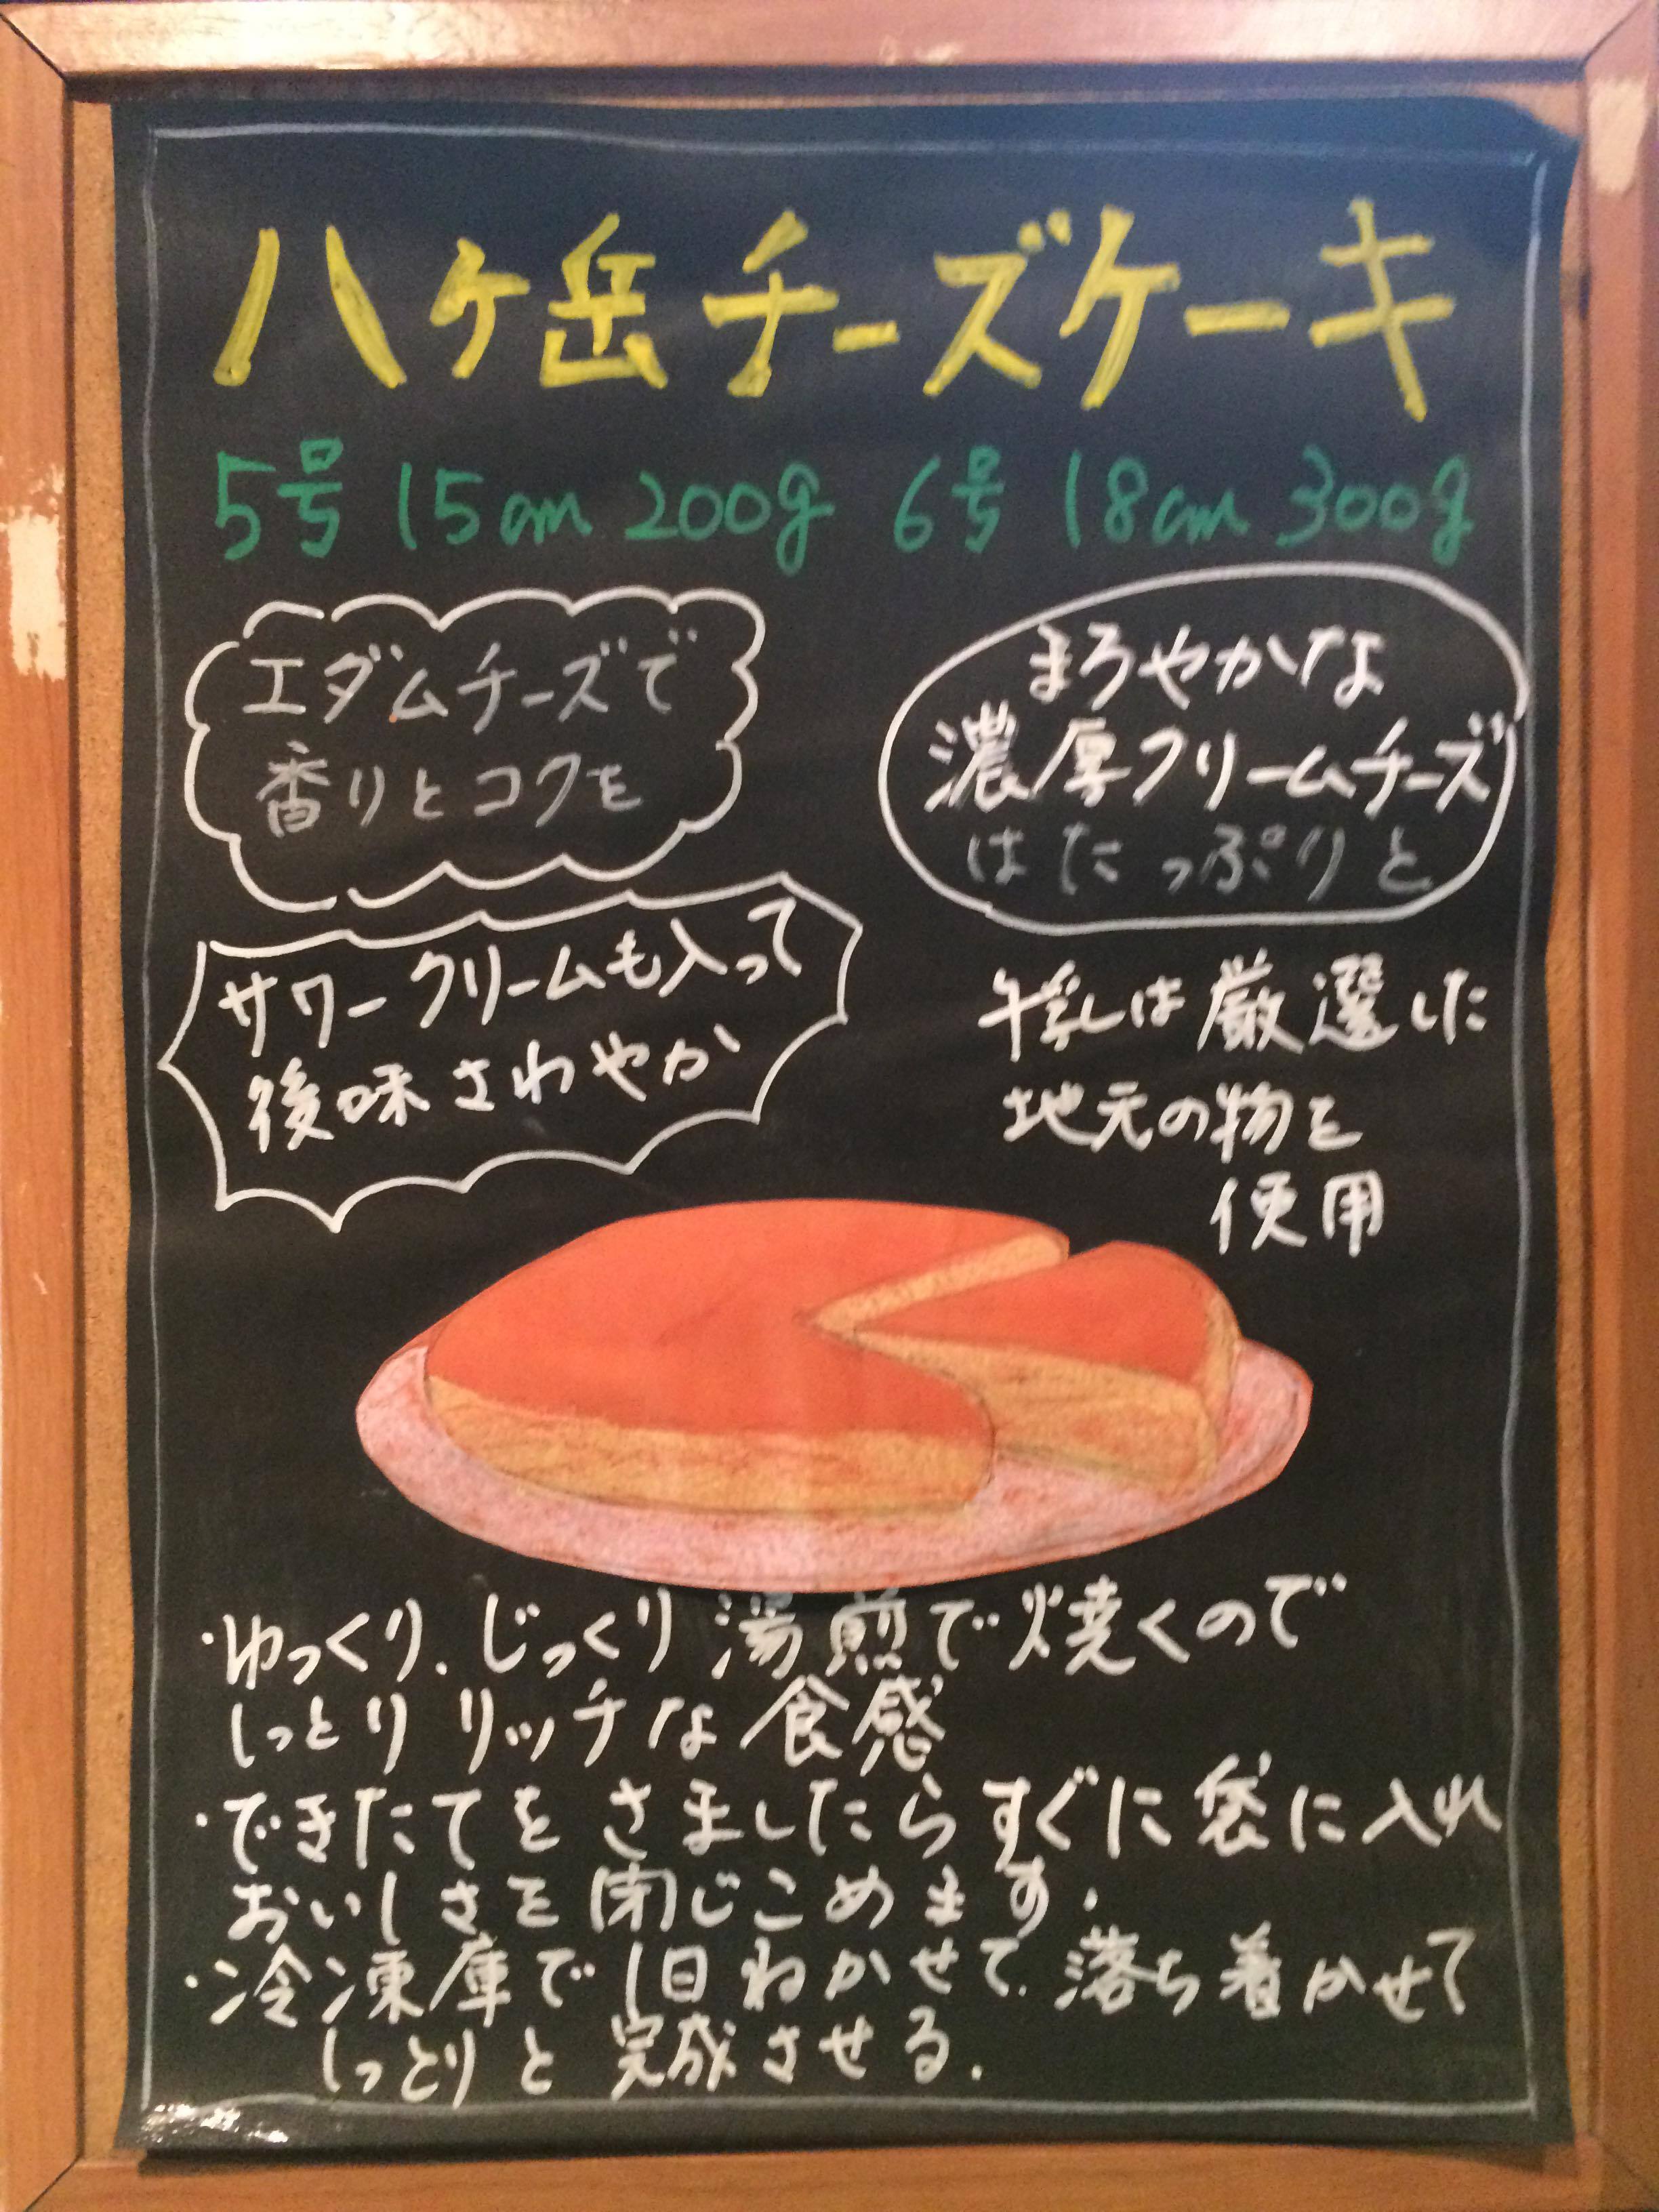 八ヶ岳チーズケーキ
5号 15cm 200g 6号 18cm 300g
エダムチーズで
香りとコクを
まろやかな
濃厚クリームチーズ
はたっぷりと
サワークリームも入って
後味さわやか
牛乳は厳選した
地元の物を
使用
・ゆっくり、じっくり湯煎で焼くので
しっとりリッチな食感
・できたてをさましたらすぐに袋に入れ
おいしさを閉じこめます.
・冷凍庫で1日ねかせて、落ち着かせて
しっとりと完成させる.